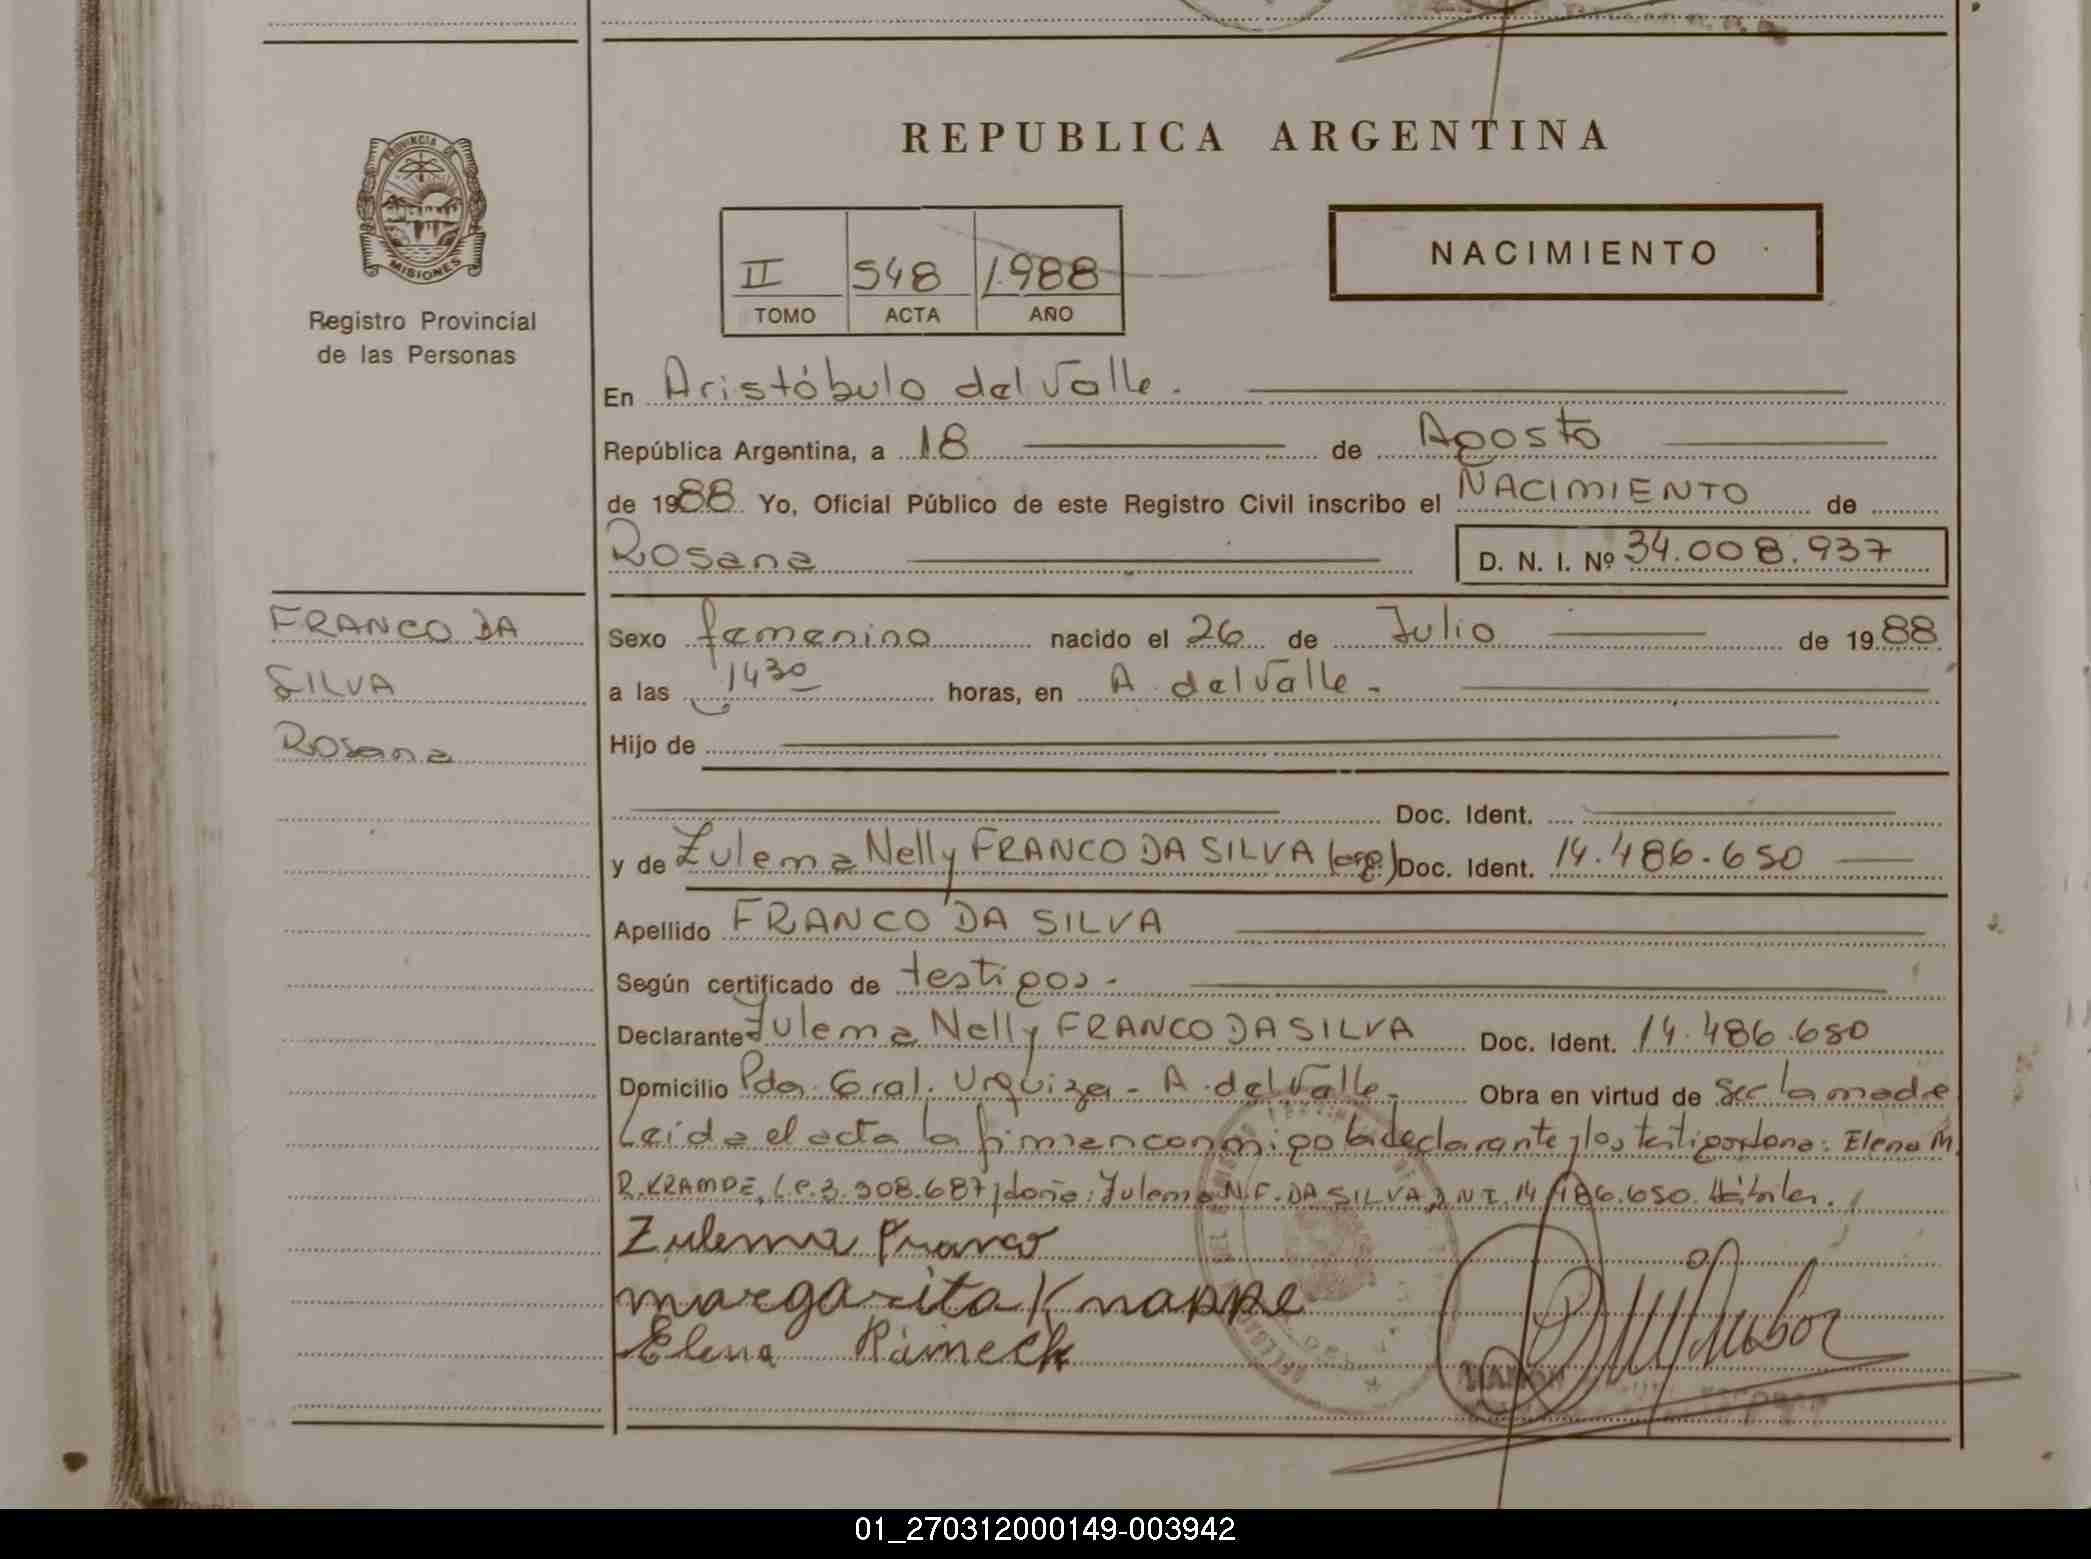 REPUBLICA ARGENTINA
PROVINCIA DE
MISIONES
Registro Provincial
de las Personas
II 548 1.988
TOMO ACTA AÑO
NACIMIENTO
En Aristóbulo del Valle.
República Argentina, a 18 de Agosto
de 1988 Yo, Oficial Público de este Registro Civil inscribo el NACIMIENTO de
Rosana D. N. I. Nº 34.008.937
FRANCO DA
SILVA
Rosana
Sexo femenino nacido el 26 de Julio de 1988
a las 1430 horas, en A. del Valle.
Hijo de
Doc. Ident.
y de Zulema Nelly FRANCO DA SILVA (arg.) Doc. Ident. 14.486.650
Apellido FRANCO DA SILVA
Según certificado de testigos.
Declarante Zulema Nelly FRANCO DA SILVA Doc. Ident. 14.486.650
Domicilio Pdo. Gral. Urquiza - A. del Valle. Obra en virtud de ser la madre
Leida el acta la firman conmigo la declarante y los testigos dona: Elena M.
R. L.C. 3.308.687 y doña: Zulema N.F. DA SILVA D.N.I. 14.486.650. Hábiles.
Zulema Franco
margarita Knappe
Elena
01_270312000149-003942